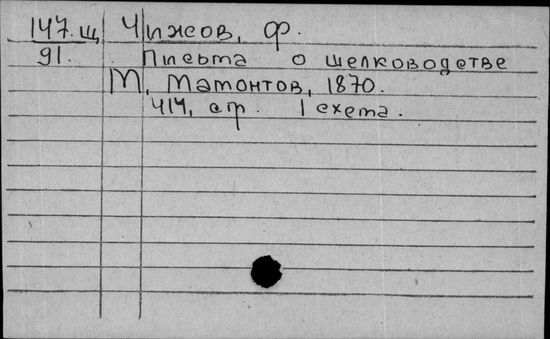 147.щ Чижов, Ф.
91. Письма о шелководстве
М, Мамонтов, 1870.
414, стр. 1 схема.